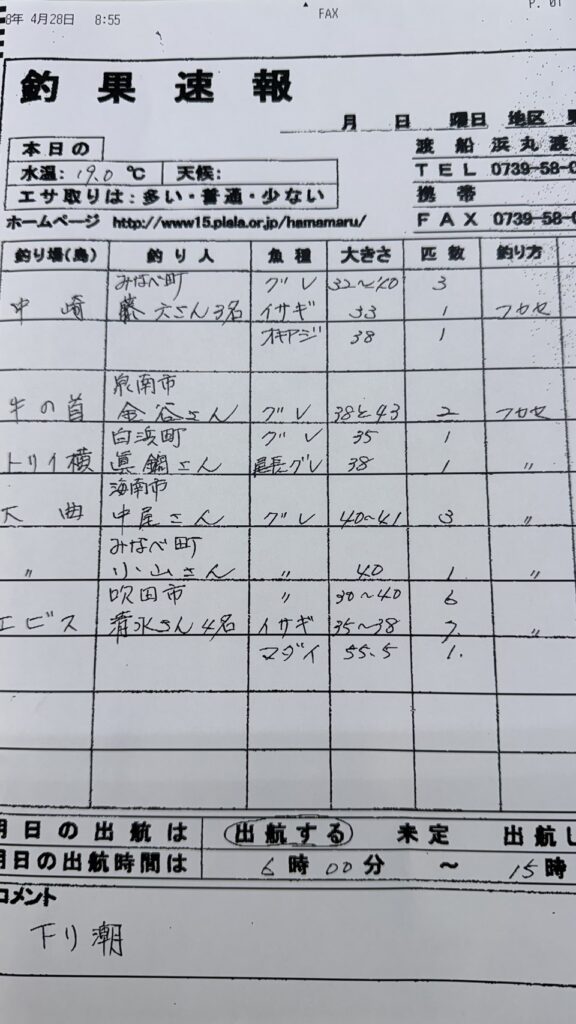 8年 4月28日 8:55 FAX P. 01
釣果速報
月 日 曜日 地区
本日の
水温: 19.0 ℃ 天候:
エサ取りは:多い・普通・少ない
渡船 浜丸渡
TEL 0739-58-0
携帯
FAX 0739-58-0
ホームページ http://www15.plala.or.jp/hamamaru/
釣り場(島) 釣り人 魚種 大きさ 匹数 釣り方
みなべ町 グレ 32〜40 3
中崎 藤六さん3名 イサギ 33 1 フカセ
オキアジ 38 1
泉南市
牛の首 金谷さん グレ 38と43 2 フカセ
白浜町 グレ 35 1
トリイ横 眞鍋さん 尾長グレ 38 1 〃
海南市
大曲 中屋さん グレ 40〜41 3 〃
みなべ町
〃 小山さん 〃 40 1 〃
吹田市 〃 30〜40 6
エビス 清水さん4名 イサギ 35〜38 7 〃
マダイ 55.5 1.
明日の出航は 出航する 未定 出航し
明日の出航時間は 6時00分 〜 15時
コメント
下り潮